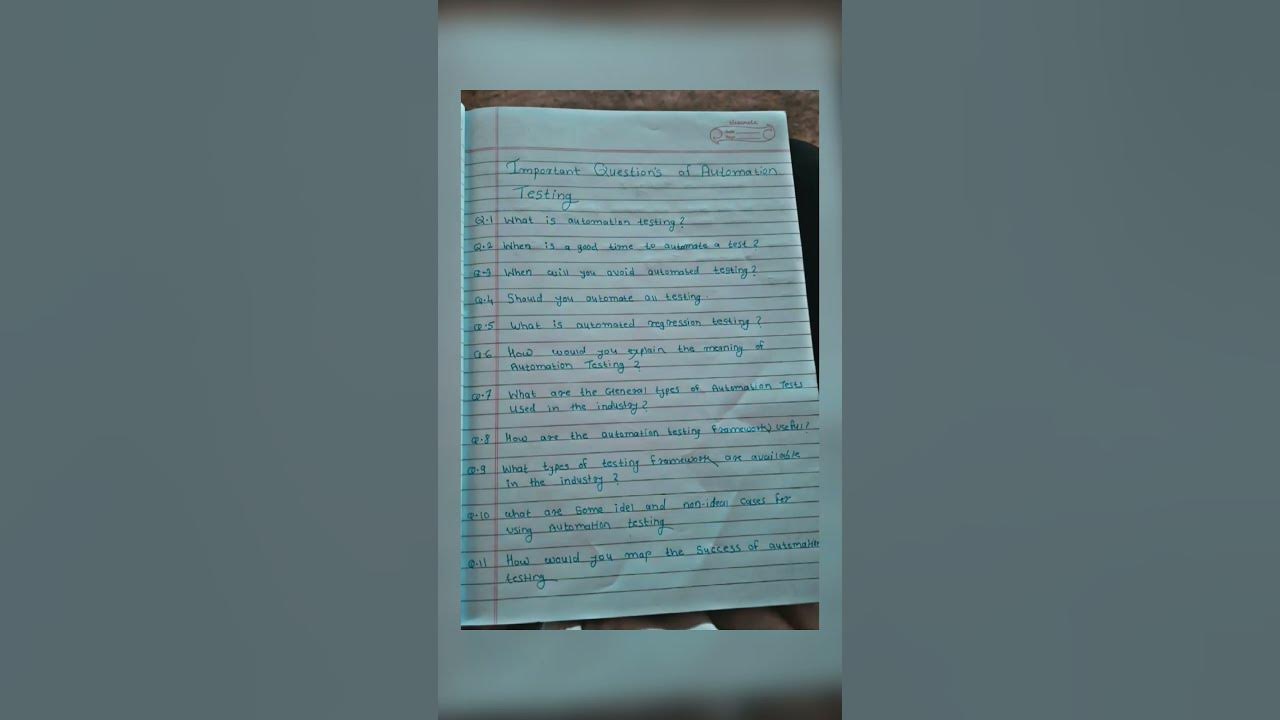 Classmate
Date
Page
Important Question's of Automation
Testing
Q.1 What is automation testing?
Q.2 When is a good time to automate a test?
Q.3 When will you avoid automated testing?
Q.4 Should you automate all testing.
Q.5 What is automated regression testing?
Q.6 How would you explain the meaning of
Automation Testing?
Q.7 What are the General types of Automation Tests
Used in the industry?
Q.8 How are the automation testing frameworks useful?
Q.9 What types of testing framework are available
in the industry?
Q.10 what are some idel and non-ideal cases for
using Automation testing
Q.11 How would you map the success of automation
testing